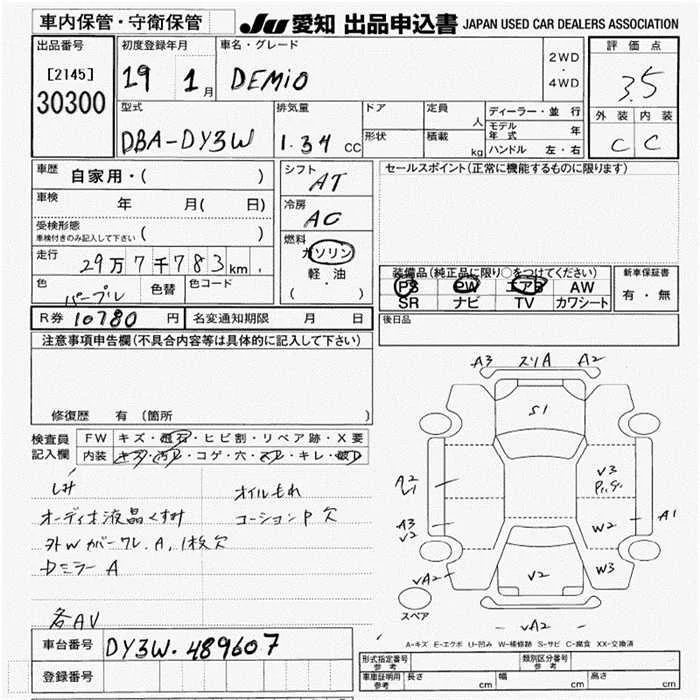 車内保管・守衛保管 JU 愛知 出品申込書 JAPAN USED CAR DEALERS ASSOCIATION
出品番号 初度登録年月 車名・グレード 2WD・4WD 評価点
[2145] 30300 19 1月 DEMIO 3.5
型式 排気量 ドア 定員 人 ディーラー・並行 外装 内装
DBA-DY3W 1.34 CC 形状 積載 kg モデル年式 年 C C
ハンドル 左・右
車歴 自家用・( ) シフト AT セールスポイント(正常に機能するものに限ります)
車検 年 月( 日) 冷房 AC
受検形態 車検付きのみ記入して下さい ( ) 燃料 ガソリン
走行 29万7千783km 軽油 装備品(純正品に限り○をつけてください) 新車保証書
色 パープル 色替 色コード ( ・ ) PS PW エアB AW 有・無
SR ナビ TV カワシート
R券 10780円 名変通知期限 月 日 後日品
注意事項申告欄(不具合内容等は具体的に記入して下さい)
A3 スリA A2
S1
修復歴 有 (箇所 )
検査員記入欄 FW キズ・飛石・ヒビ割・リペア跡・X要
内装 キズ・汚レ・コゲ・穴・スレ・キレ・破レ
シミ オイルもれ
オーディオ液晶くすみ コーションP欠
外Wカバーワレ、A、1枚欠
DミラーA
各AV
A2 V3
A3 V2 W2 A1
VA2 V2 W3
スペア VA2
A-キズ E-エクボ U-凹み W-補修跡 S-サビ C-腐食 XX-交換済
車台番号 DY3W-489607
登録番号
形式指定番号 参考 類別区分番号 参考
車庫証明用 参考 長さ cm 幅 cm 高さ cm